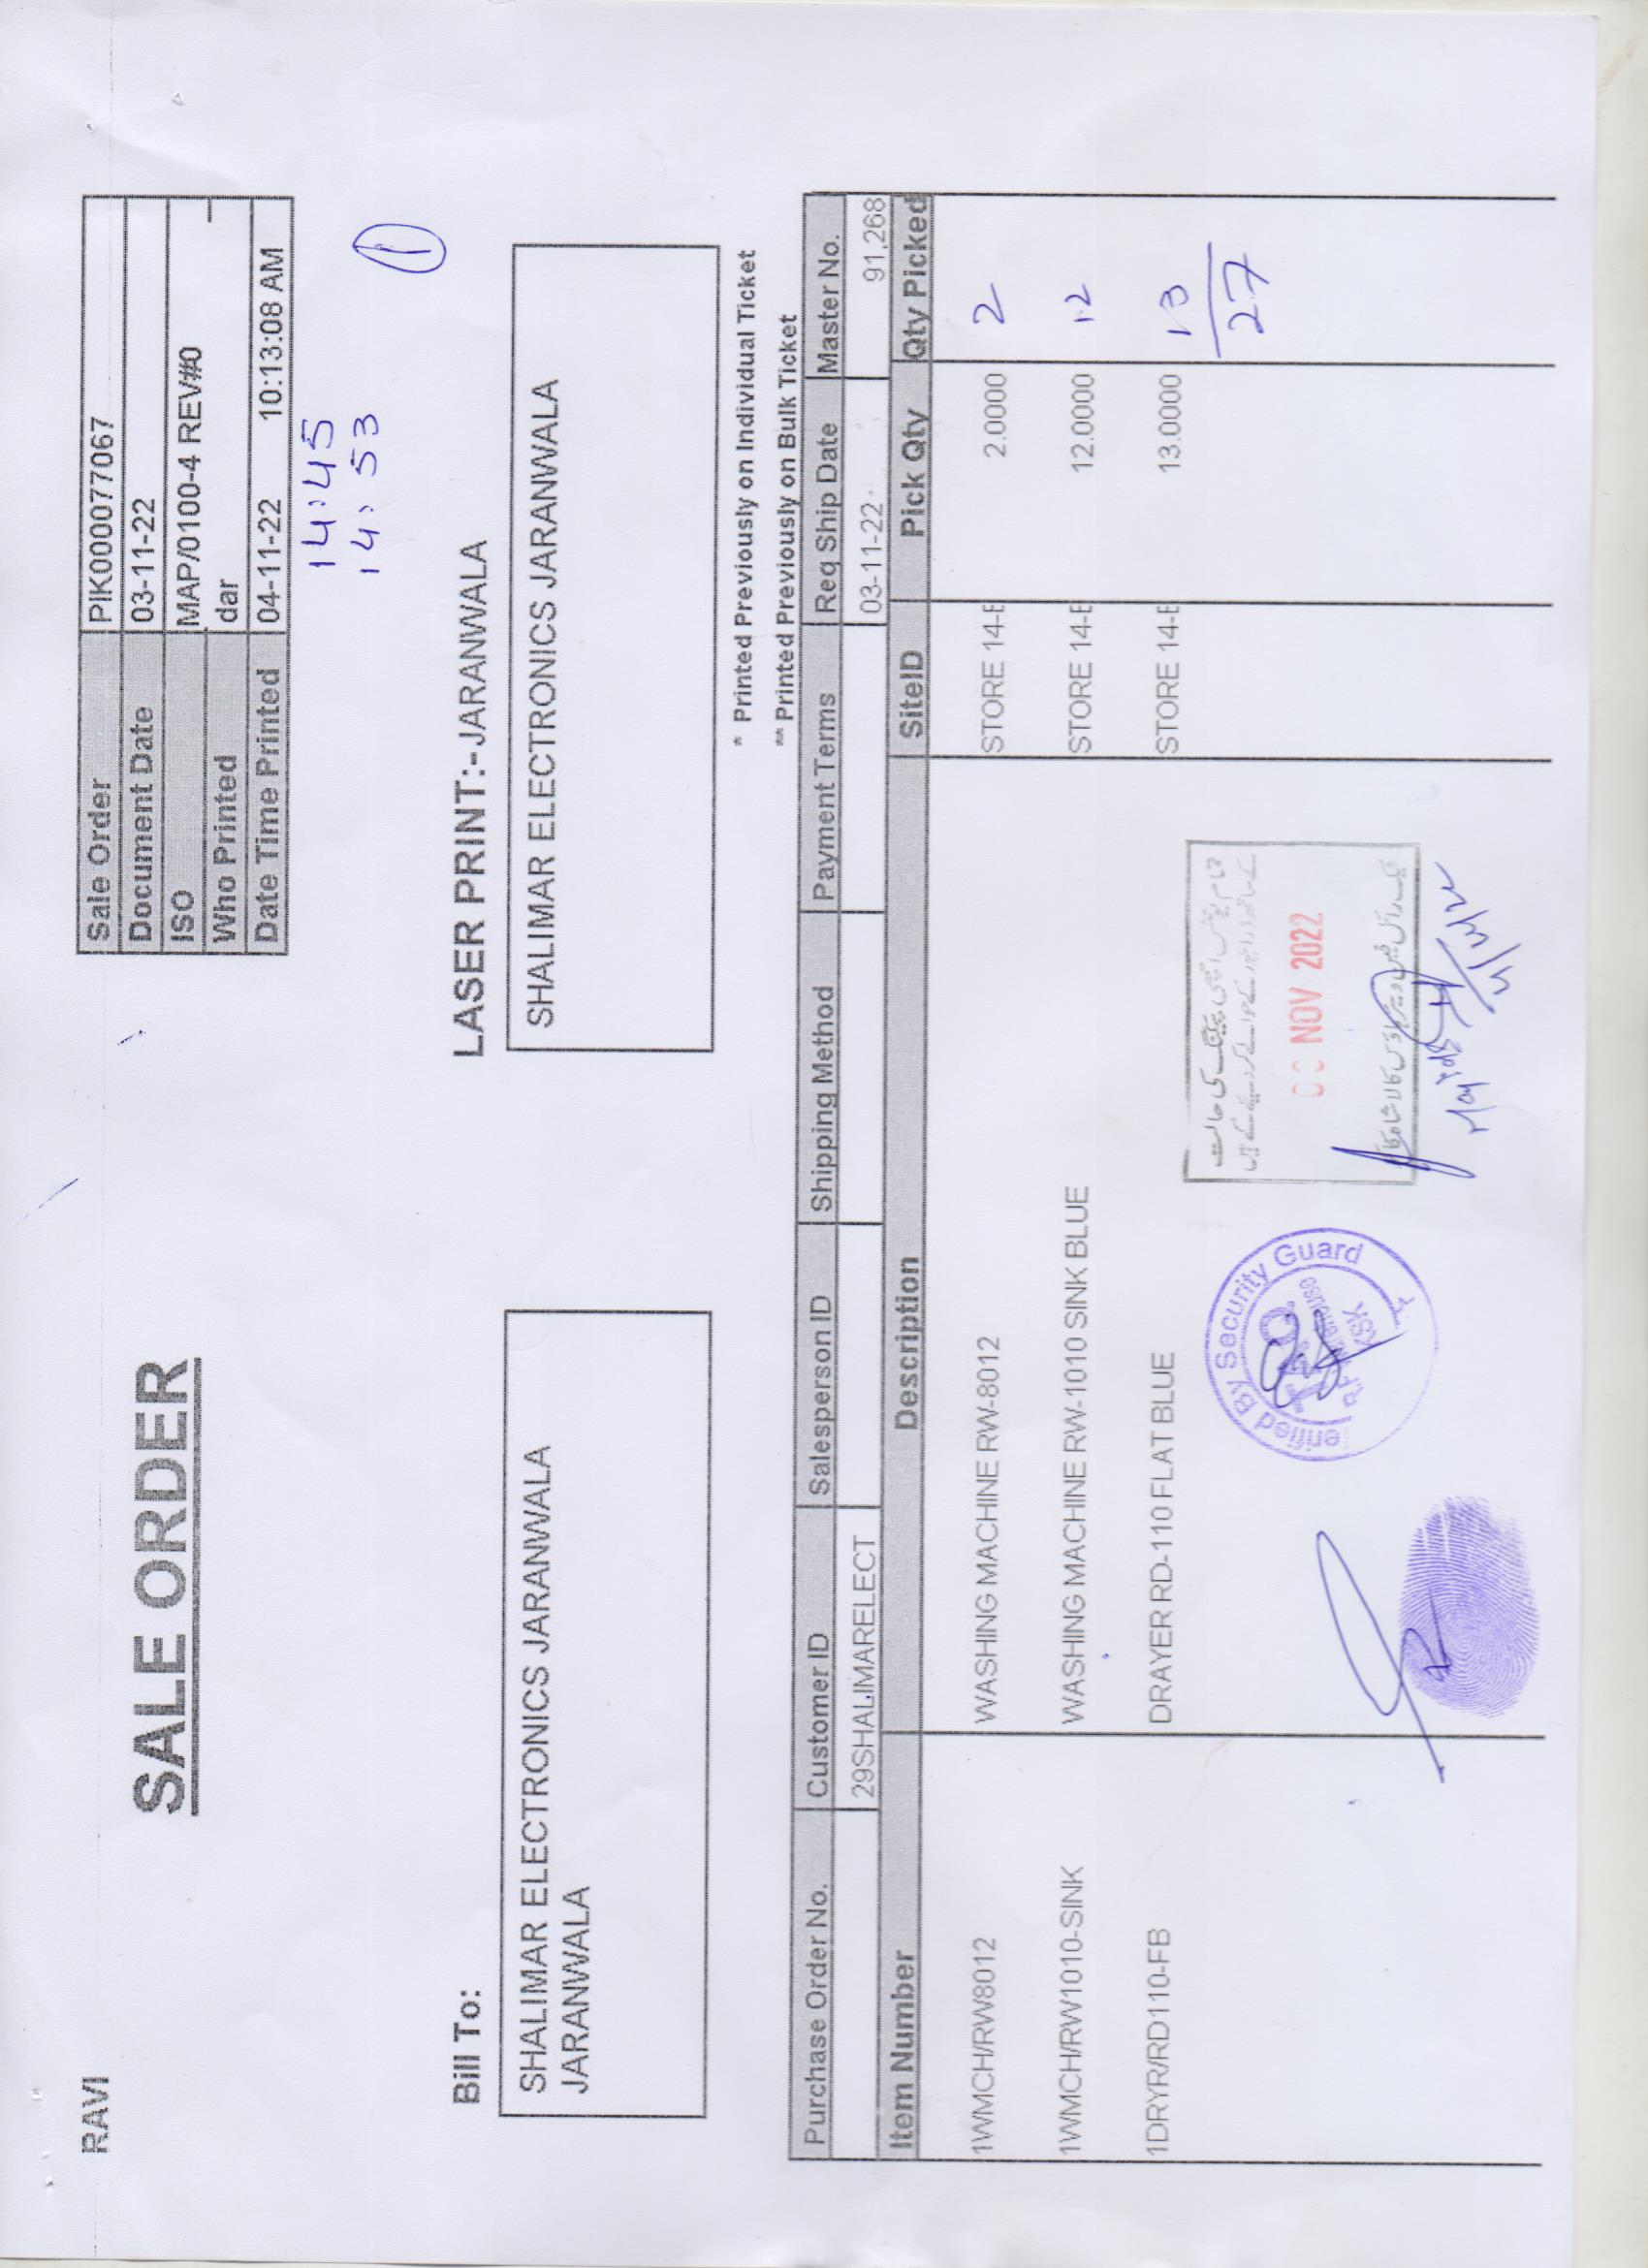 RAVI
SALE ORDER
Sale Order PIK000077067
Document Date 03-11-22
ISO MAP/0100-4 REV#0
Who Printed dar
Date Time Printed 04-11-22 10:13:08 AM
14:45
14:53
1
Bill To:
SHALIMAR ELECTRONICS JARANWALA
JARANWALA
LASER PRINT:-JARANWALA
SHALIMAR ELECTRONICS JARANWALA
* Printed Previously on Individual Ticket
** Printed Previously on Bulk Ticket
Purchase Order No. Customer ID Salesperson ID Shipping Method Payment Terms Req Ship Date Master No.
29SHALIMARELECT 03-11-22 91,268
Item Number Description SiteID Pick Qty Qty Picked
1WMCH/RW8012 WASHING MACHINE RW-8012 STORE 14-E 2.0000 2
1WMCH/RW1010-SINK WASHING MACHINE RW-1010 SINK BLUE STORE 14-E 12.0000 12
1DRYR/RD110-FB DRAYER RD-110 FLAT BLUE STORE 14-E 13.0000 13
27
erified By Security Guard
KSK
تمام یونٹس اچھی پیکنگ کی حالت
کے ساتھ ڈرائیور کے حوالے کر دیئے گئے ہیں
NOV 2022